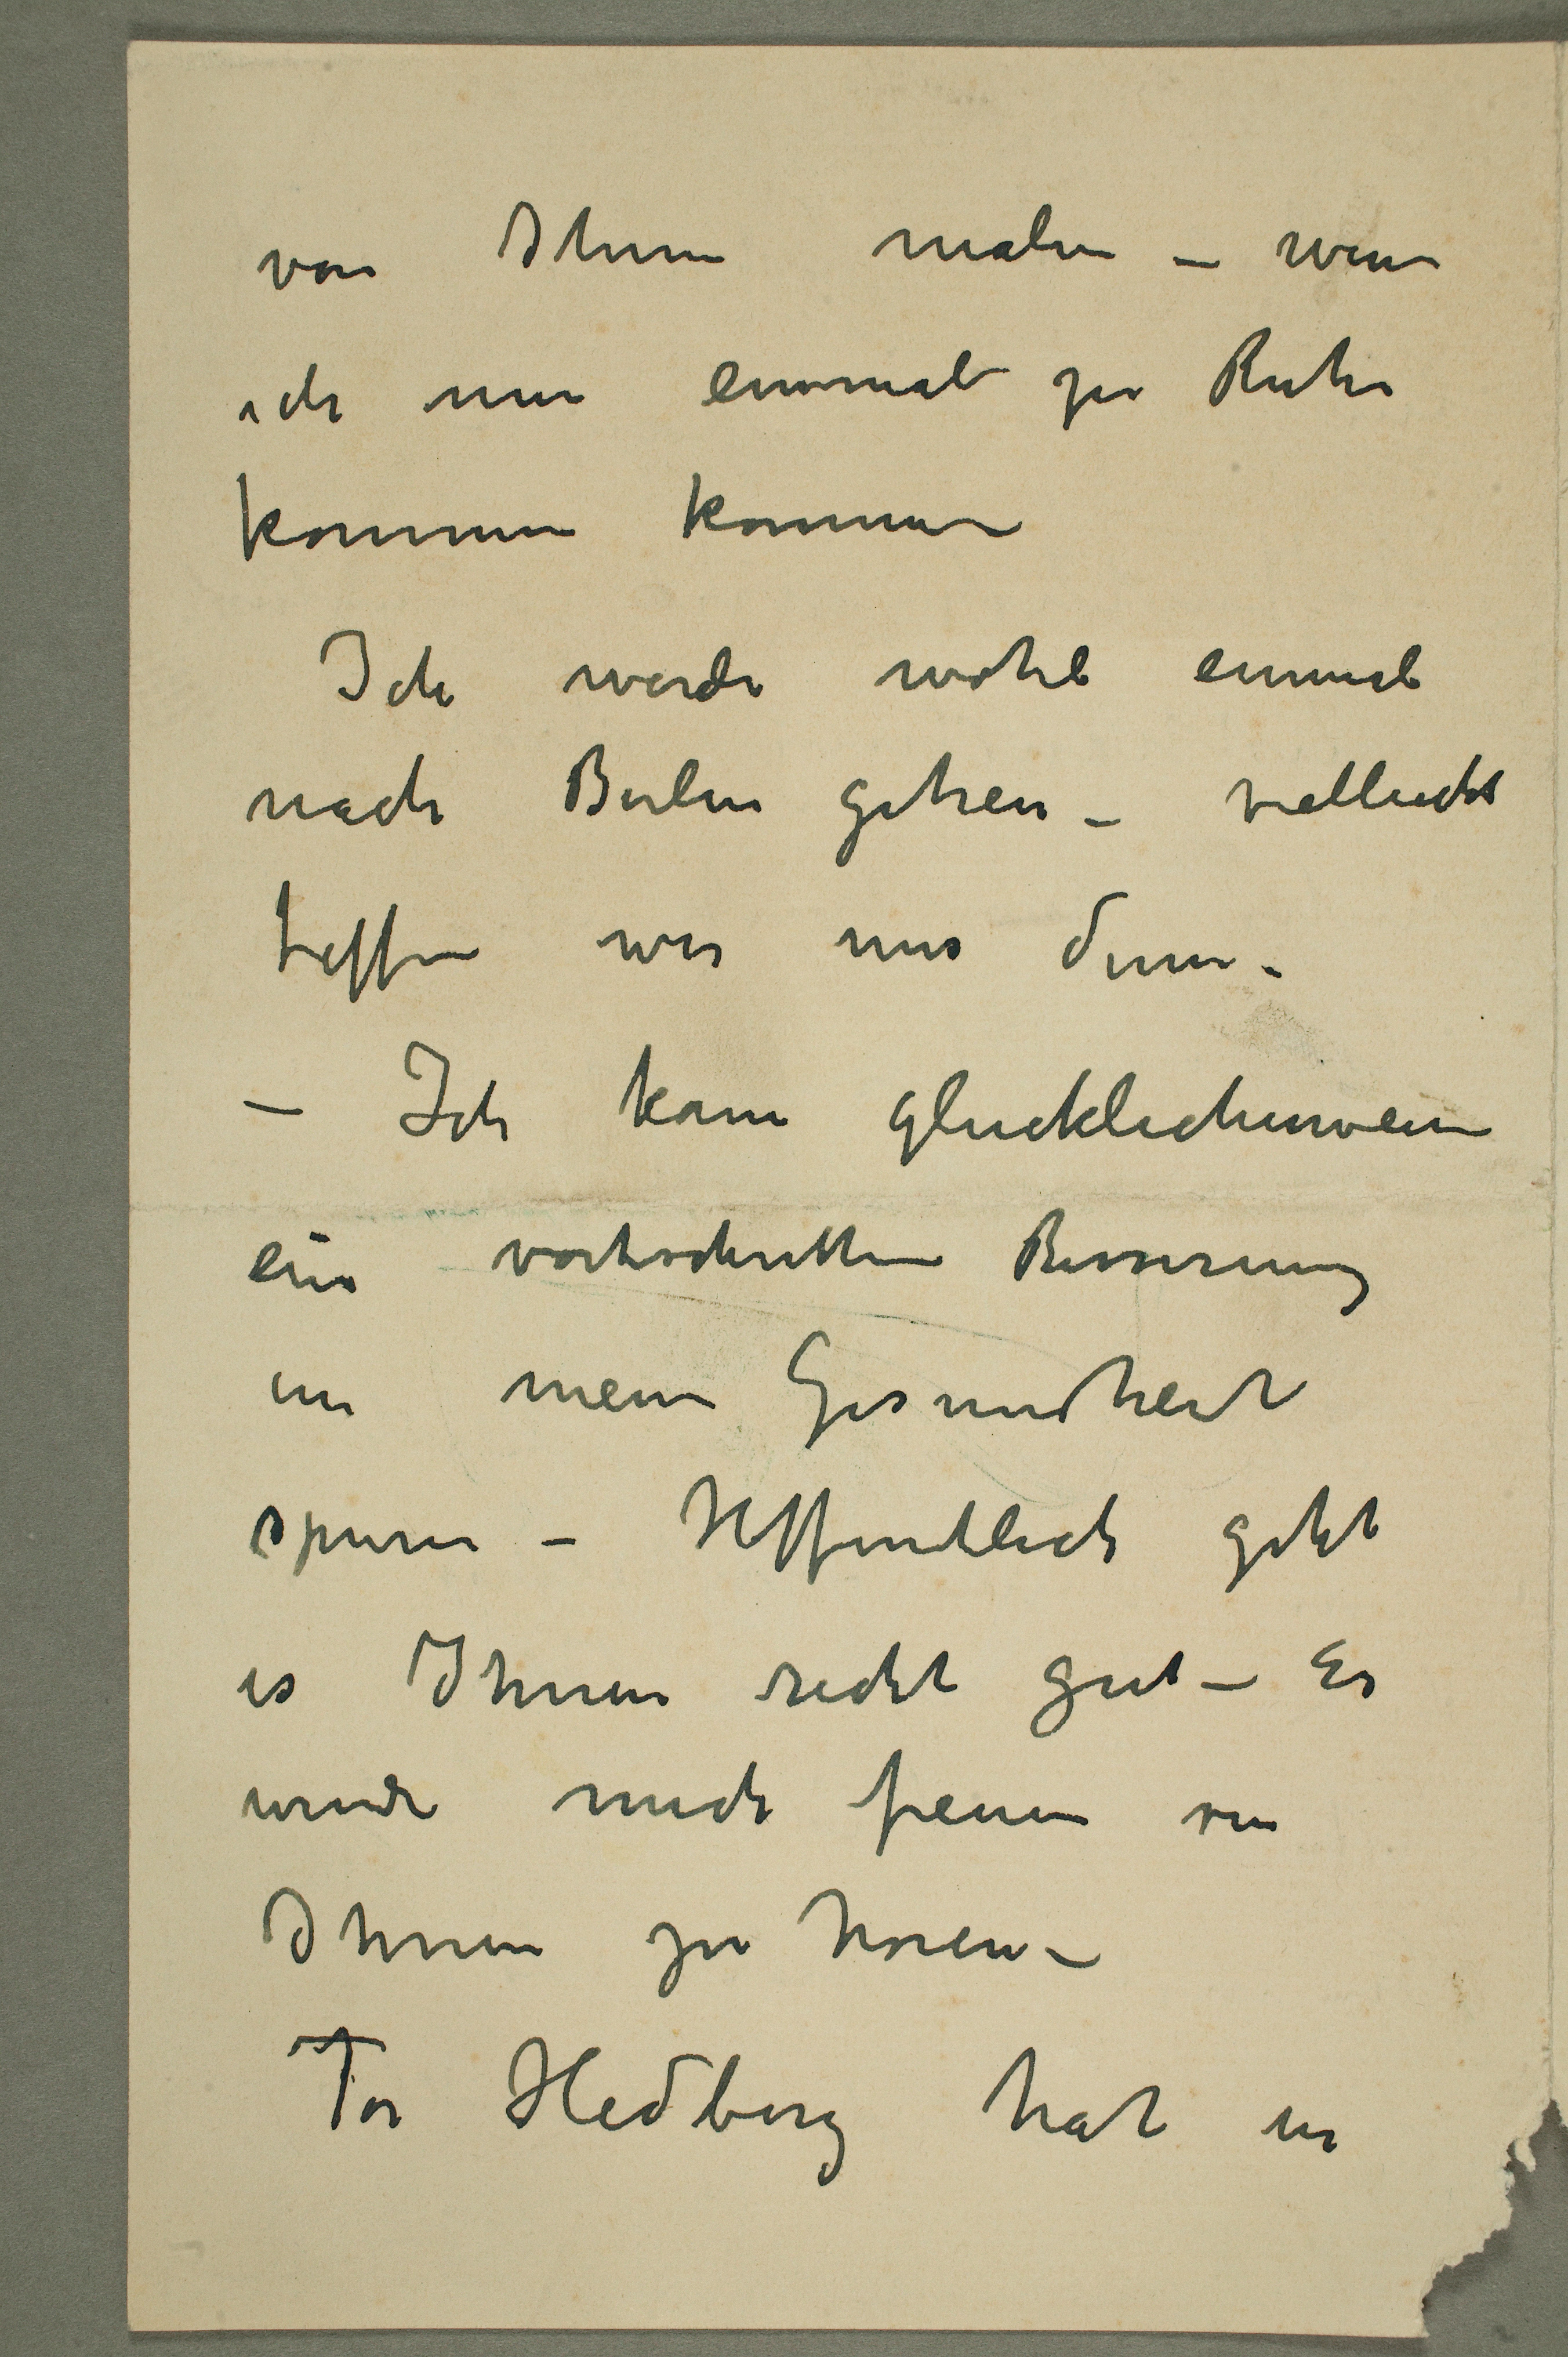 von Ihnen malen – wenn
ich nur einmal zu Ruhe
kommen kommen
Ich werde wohl einmal
nach Berlin gehen – vielleicht
treffen wir uns dann –
– Ich kann glucklicherweise
ein vortschritten Besserung
in meine Gesundheit
spuren – Hoffentlich geht
es Ihnen recht gut – Es
wurde mich freuen von
Ihnen zu horen –
Tor Hedberg hat in